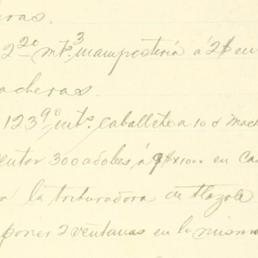 eras.
2²⁰ mts.³ mampostería á 2$ en
acheras.
123⁹⁰ mts. caballete a 10¢ mach
entar 300 adobes á 9$ x 100 en ca
la trituradora de tlazole
poner 2 ventanas en la misma